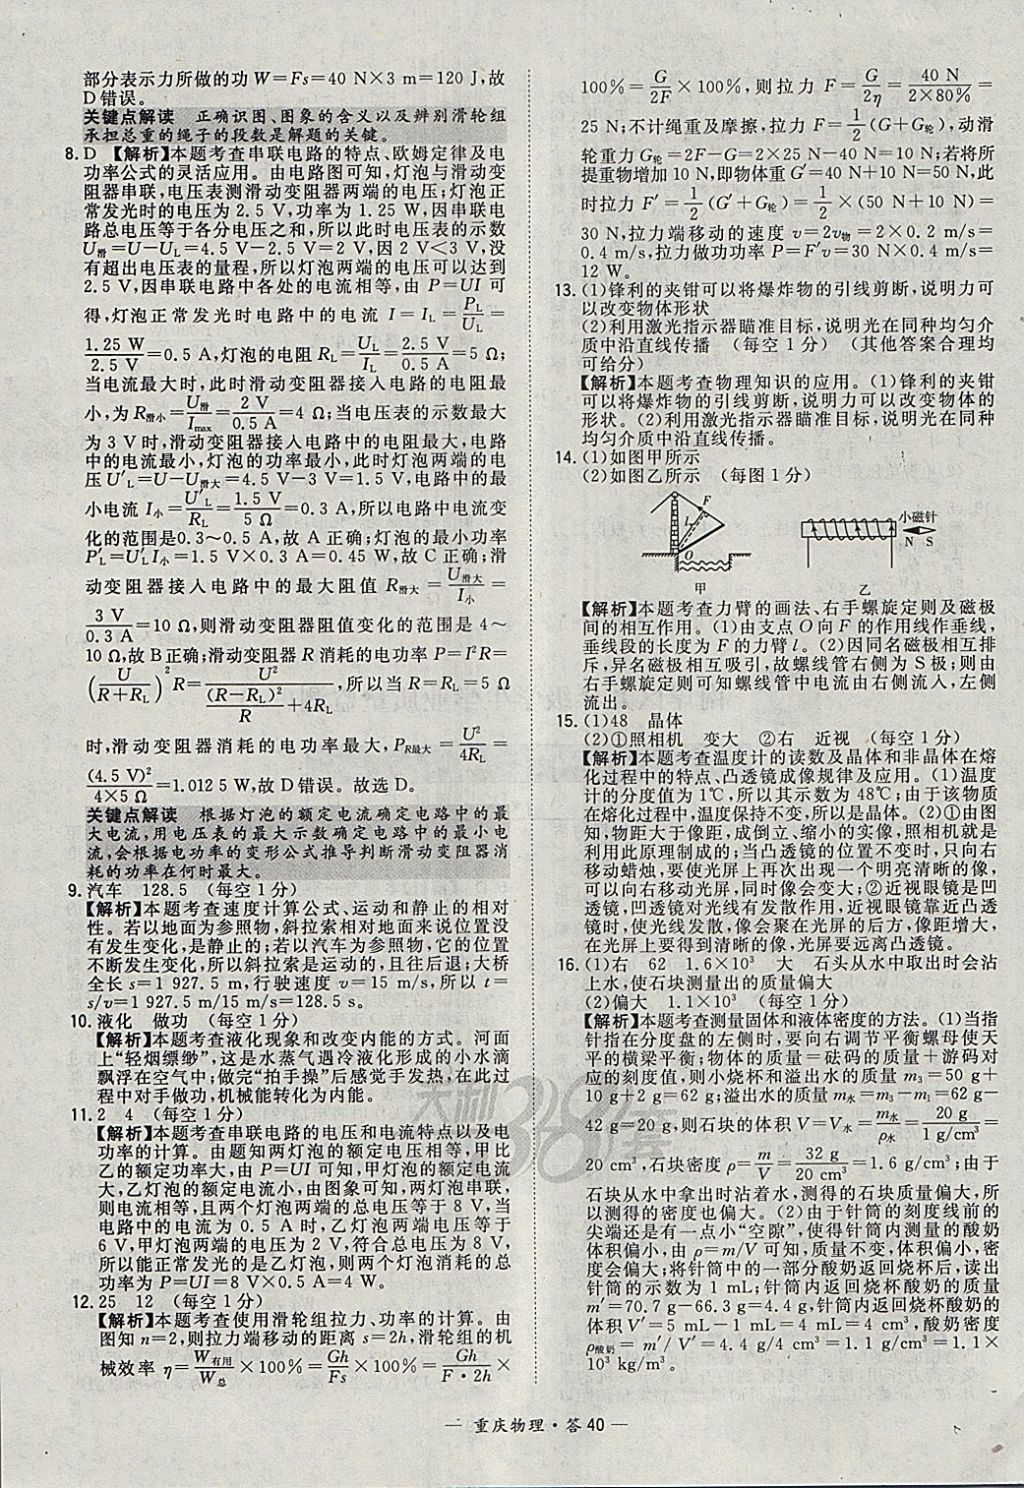 部分表示力所做的功 W=Fs=40 N×3 m=120 J,故
D错误。
关键点解读 正确识图、图象的含义以及辨别滑轮组
承担总重的绳子的段数是解题的关键。
8. D 【解析】本题考查串联电路的特点、欧姆定律及电
功率公式的灵活应用。由电路图可知,灯泡与滑动变
阻器串联,电压表测滑动变阻器两端的电压;灯泡正
常发光时的电压为 2.5 V,功率为 1.25 W,因串联电
路总电压等于各分电压之和,所以此时电压表的示数
U滑=U-UL=4.5 V-2.5 V=2 V,因 2 V<3 V,没
有超出电压表的量程,所以灯泡两端的电压可以达到
2.5 V,因串联电路中各处的电流相等,由 P=UI 可
得,灯泡正常发光时电路中的电流 I=IL=PL/UL=
1.25 W/2.5 V=0.5 A,灯泡的电阻 RL=UL/IL=2.5 V/0.5 A=5 Ω;
当电流最大时,此时滑动变阻器接入电路的电阻最
小,为 R滑小=U滑/Imax=2 V/0.5 A=4 Ω;当电压表的示数最大
为 3 V时,滑动变阻器接入电路中的电阻最大,电路
中的电流最小,灯泡的功率最小,此时灯泡两端的电
压 U′L=U-U滑大=4.5 V-3 V=1.5 V,电路中的最
小电流 I小=U′L/RL=1.5 V/5 Ω=0.3 A,所以电路中电流变
化的范围是0.3~0.5 A,故 A 正确;灯泡的最小功率
P′L=U′LI小=1.5 V×0.3 A=0.45 W,故 C 正确;滑
动变阻器接入电路中的最大阻值 R滑大=U滑大/I小=
3 V/0.3 A=10 Ω,则滑动变阻器阻值变化的范围是 4~
10 Ω,故 B 正确;滑动变阻器 R 消耗的电功率 P=I²R=
(U/(R+RL))²R=U²/((R-RL)²/R+4RL),所以当 R=RL=5 Ω
时,滑动变阻器消耗的电功率最大,PR最大=U²/4RL=
(4.5 V)²/4×5 Ω=1.012 5 W,故 D 错误。故选 D。
关键点解读 根据灯泡的额定电流确定电路中的最
大电流,用电压表的最大示数确定电路中的最小电
流,会根据电功率的变形公式推导判断滑动变阻器消
耗的功率在何时最大。
9. 汽车 128.5 (每空1分)
【解析】本题考查速度计算公式、运动和静止的相对
性。若以地面为参照物,斜拉索相对地面来说位置没
有发生变化,是静止的;若以汽车为参照物,它的位置
不断发生变化,所以斜拉索是运动的,且往后退;大桥
全长 s=1 927.5 m,行驶速度 v=15 m/s,所以 t=
s/v=1 927.5 m/15 m/s=128.5 s。
10. 液化 做功 (每空1分)
【解析】本题考查液化现象和改变内能的方式。河面
上“轻烟缥缈”,这是水蒸气遇冷液化形成的小水滴
飘浮在空气中;做完“拍手操”后感觉手发热,在此过
程中对手做功,机械能转化为内能。
11. 2 4 (每空1分)
【解析】本题考查串联电路的电压和电流特点以及电
功率的计算。由题知两灯泡的额定电压相等,甲比
乙的额定功率大,由 P=UI 可知,甲灯泡的额定电流
大,乙灯泡的额定电流小,由图象可知,两灯泡串联,
则电流相等,且两个灯泡两端的总电压等于 8 V,当
电路中的电流为 0.5 A 时,乙灯泡两端电压等于
6 V,甲灯泡两端的电压为 2 V,符合总电压为 8 V,
所以能正常发光的是乙灯泡,则两个灯泡消耗的总
功率为 P=UI=8 V×0.5 A=4 W。
12. 25 12 (每空1分)
【解析】本题考查使用滑轮组拉力、功率的计算。由
图知 n=2,则拉力端移动的距离 s=2h,滑轮组的机
械效率 η=W有用/W总×100%=Gh/Fs×100%=Gh/F·2h×
100%=G/2F×100%,则拉力 F=G/2η=40 N/2×80%=
25 N;不计绳重及摩擦,拉力 F=1/2(G+G轮),动滑
轮重力 G轮=2F-G=2×25 N-40 N=10 N;若将所
提重物增加 10 N,即物体重 G′=40 N+10 N=50 N,此
时拉力 F′=1/2(G′+G轮)=1/2×(50 N+10 N)=
30 N,拉力端移动的速度 v=2v物=2×0.2 m/s=
0.4 m/s,拉力做功功率 P=F′v=30 N×0.4 m/s=
12 W。
13. (1)锋利的夹钳可以将爆炸物的引线剪断,说明力可
以改变物体形状
(2)利用激光指示器瞄准目标,说明光在同种均匀介
质中沿直线传播 (每空1分) (其他答案合理均
可给分)
【解析】本题考查物理知识的应用。(1)锋利的夹钳
可以将爆炸物的引线剪断,说明力可以改变物体的
形状。(2)利用激光指示器瞄准目标,说明光在同种
均匀介质中沿直线传播。
14. (1)如图甲所示
(2)如图乙所示 (每图1分)
F
l
O
甲
小磁针
N S
乙
【解析】本题考查力臂的画法、右手螺旋定则及磁极
间的相互作用。(1)由支点 O 向 F 的作用线作垂线,
垂线段的长度为 F 的力臂 l。(2)因同名磁极相互排
斥,异名磁极相互吸引,故螺线管右侧为 S 极;则由
右手螺旋定则可知螺线管中电流由右侧流入,左侧
流出。
15. (1)48 晶体
(2)①照相机 变大 ②右 近视 (每空1分)
【解析】本题考查温度计的读数及晶体和非晶体在熔
化过程中的特点、凸透镜成像规律及应用。(1)温度
计的分度值为 1℃,所以其示数为 48℃;由于该物质
在熔化过程中,温度保持不变,所以是晶体。(2)①由图
知,物距大于像距,成倒立、缩小的实像,照相机就是
利用此原理制成的;当凸透镜的位置不变时,只向右
移动蜡烛,要使光屏上再次出现一个明亮清晰的像,
可以向右移动光屏,同时像会变大;②近视眼镜是凹
透镜,凹透镜对光线有发散作用,近视眼镜靠近凸透
镜时,使光线发散,像会聚在光屏的后方,像距增大,
在光屏上要得到清晰的像,光屏要远离凸透镜。
16. (1)右 62 1.6×10³ 大 石头从水中取出时会沾
上水,使石块测量出的质量偏大
(2)偏大 1.1×10³ (每空1分)
【解析】本题考查测量固体和液体密度的方法。(1)当指
针指在分度盘的左侧时,要向右调节平衡螺母使天
平的横梁平衡;物体的质量=砝码的质量+游码对
应的刻度值,则小烧杯和溢出水的质量 m₃=50 g+
10 g+2 g=62 g;溢出水的质量 m水=m₃-m₁=62 g-
42 g=20 g,则石块的体积 V=V水=m水/ρ水=20 g/1 g/cm³=
20 cm³,石块密度 ρ=m/V=32 g/20 cm³=1.6 g/cm³;由于
石块从水中拿出时沾着水,测得的石块质量偏大,所
以测得的密度也偏大。(2)由于针筒的刻度线前的
尖端还是有一点小“空隙”,使得针筒内测量的酸奶
体积偏小,由 ρ=m/V 可知,质量不变,体积偏小,密
度会偏大;将针筒中的一部分酸奶返回烧杯后,读出
针筒的示数为 1 mL;针筒内返回烧杯酸奶的质量
m′=70.7 g-66.3 g=4.4 g,针筒内返回烧杯酸奶的
体积 V′=5 mL-1 mL=4 mL=4 cm³,酸奶密度
ρ酸奶=m′/V′=4.4 g/4 cm³=1.1 g/cm³=1.1×
10³ kg/m³。
天利38套
— 重庆物理·答 40 —